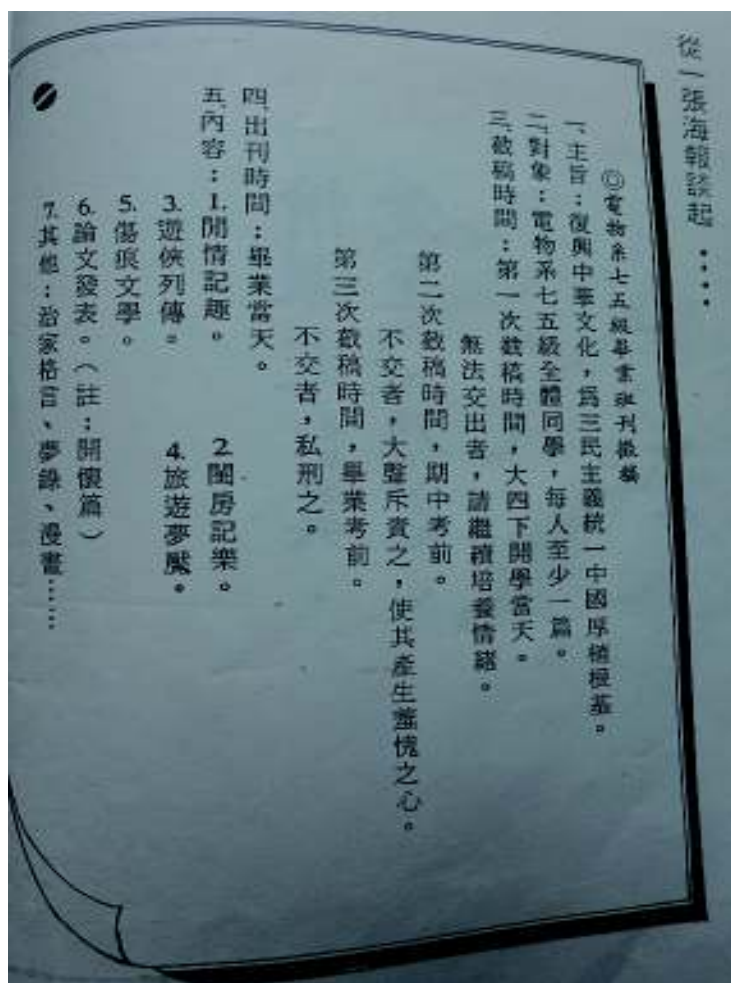 從一張海報談起‥‥
◎電物系七五級畢業班刊徵稿
一、主旨：復興中華文化，為三民主義統一中國厚植根基。
二、對象：電物系七五級全體同學，每人至少一篇。
三、截稿時間：第一次截稿時間，大四下開學當天。
無法交出者，請繼續培養情緒。
第二次截稿時間，期中考前。
不交者，大聲斥責之，使其產生羞愧之心。
第三次截稿時間，畢業考前。
不交者，私刑之。
四、出刊時間：畢業當天。
五、內容：1.閒情記趣。 2.閨房記樂。
3.遊俠列傳。 4.旅遊夢魘。
5.傷痕文學。
6.論文發表。（註：開懷篇）
7.其他：治家格言、夢錄、漫畫……